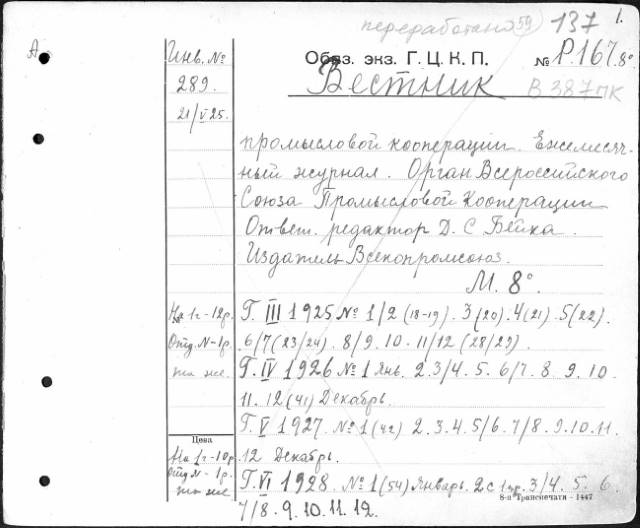 переработано 59 137 1.
А
Инв. № Обяз. экз. Г. Ц. К. П. № Р.167. 8°
289. Вестник В 387 ПК
21/V 25.
промысловой кооперации. Ежемесяч-
ный журнал. Орган Всероссийского
Союза Промысловой Кооперации
Ответ. редактор Д. С. Бейка.
Издатель Всекопромсоюз.
М. 8°.
На 1 г - 12 р. Г. III 1925 № 1/2 (18-19). 3 (20). 4 (21). 5 (22).
Отд. N - 1 р. 6/7 (23/24). 8/9. 10. 11/12 (28/29).
та же. Г. IV 1926 № 1 Янв. 2. 3/4. 5. 6/7. 8. 9. 10
11. 12 (41) Декабрь.
Г. V 1927. № 1 (42) 2. 3. 4. 5/6. 7/8. 9. 10. 11.
Цена
На 1 г - 10 р. 12 Декабрь.
Отд N - 1 р. Г. VI 1928. № 1 (54) Январь. 2 с 3/4. 5. 6
та же 8-я Транспечати - 1447
7/8. 9. 10. 11. 12.